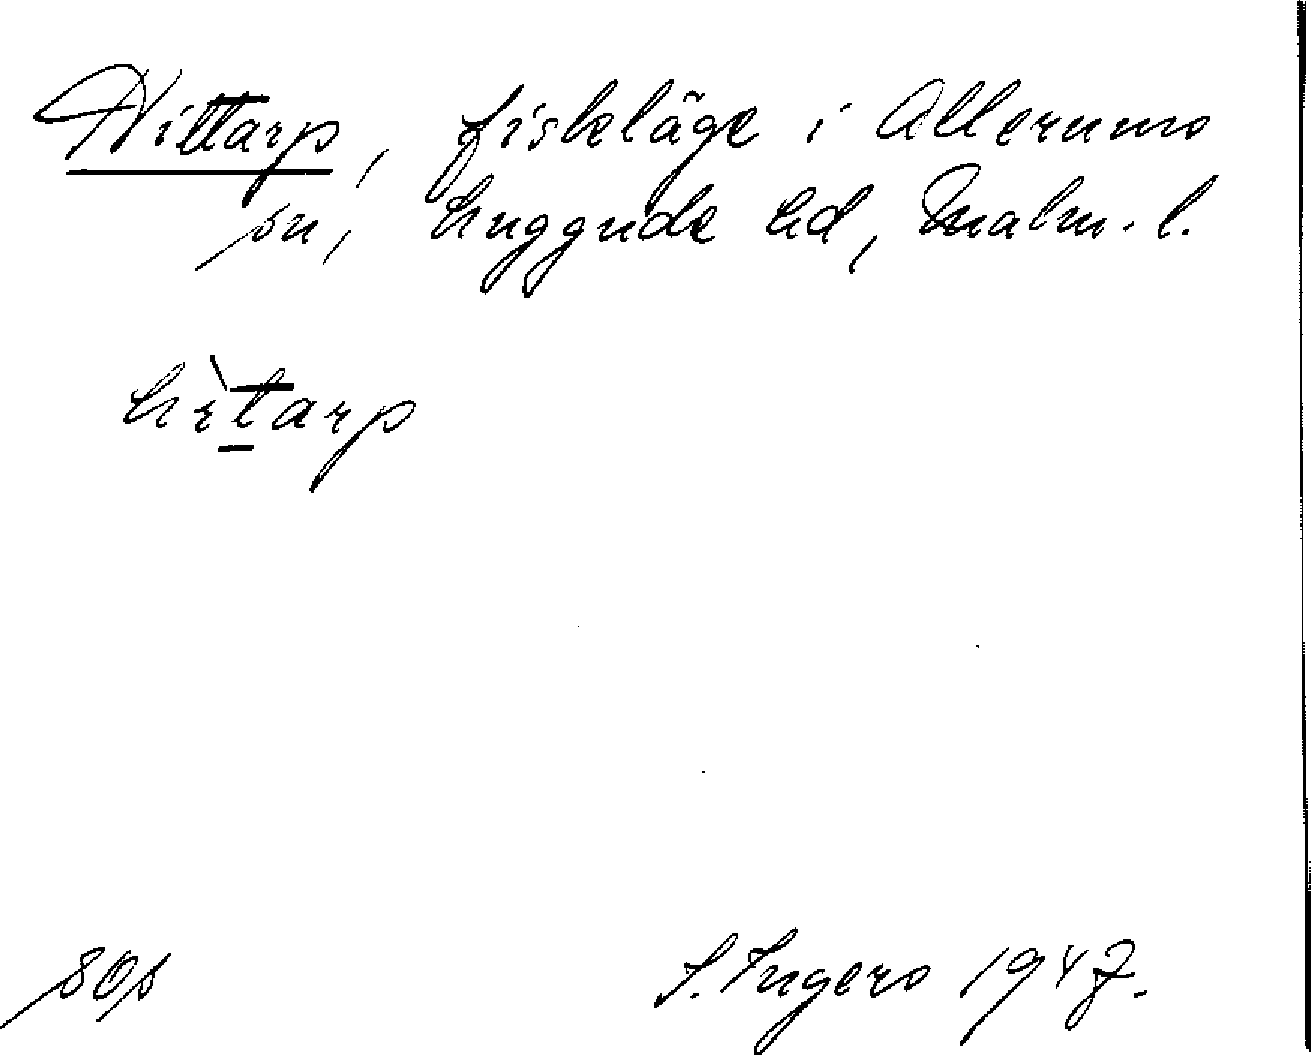 Hittarp, fiskeläge i Allerums
sn, Luggude hd, Malm. l.
hìtarp
S. Ingers 1947.